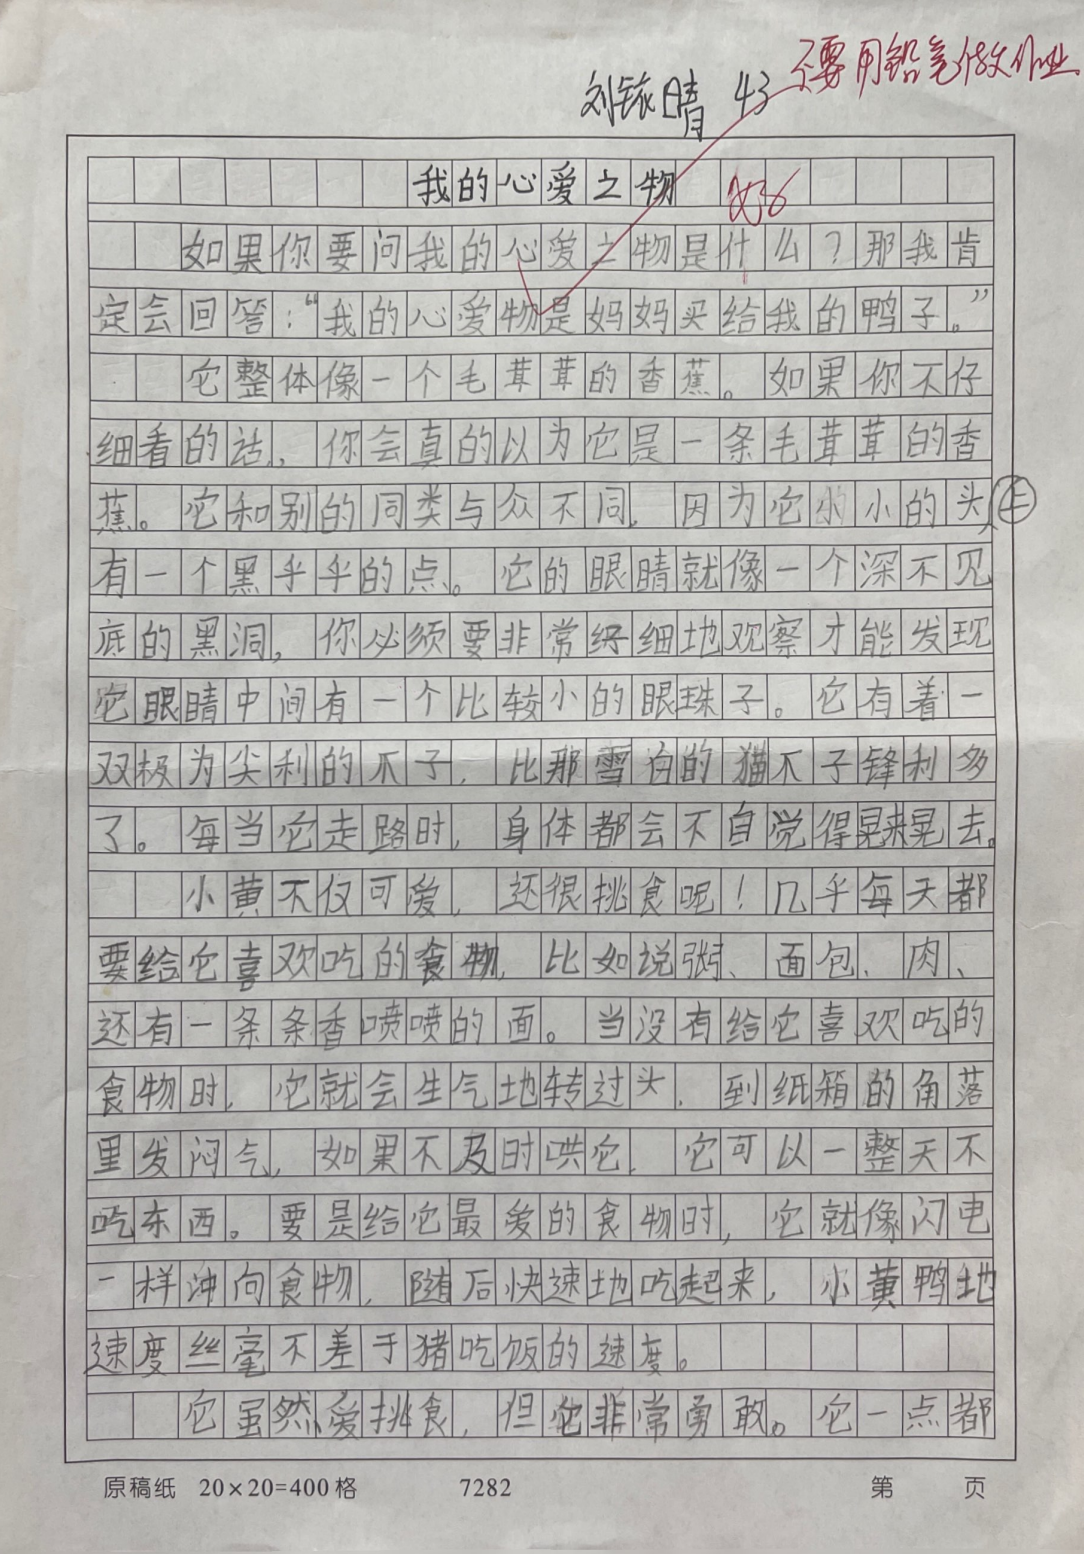 不要用铅笔做作业
刘铱晴 43
我的心爱之物
如果你要问我的心爱之物是什么？那我肯
定会回答：“我的心爱物是妈妈买给我的鸭子。”
它整体像一个毛茸茸的香蕉。如果你不仔
细看的话，你会真的以为它是一条毛茸茸的香
蕉。它和别的同类与众不同，因为它小小的头上
有一个黑乎乎的点。它的眼睛就像一个深不见
底的黑洞，你必须要非常仔细地观察才能发现
它眼睛中间有一个比较小的眼珠子。它有着一
双极为尖利的爪子，比那雪白的猫爪子锋利多
了。每当它走路时，身体都会不自觉得晃来晃去。
小黄不仅可爱，还很挑食呢！几乎每天都
要给它喜欢吃的食物，比如说粥、面包、肉、
还有一条条香喷喷的面。当没有给它喜欢吃的
食物时，它就会生气地转过头，到纸箱的角落
里发闷气，如果不及时哄它，它可以一整天不
吃东西。要是给它最爱的食物时，它就像闪电
一样冲向食物，随后快速地吃起来，小黄鸭地
速度丝毫不差于猪吃饭的速度。
它虽然爱挑食，但它非常勇敢。它一点都
原稿纸 20×20=400格 7282 第 页